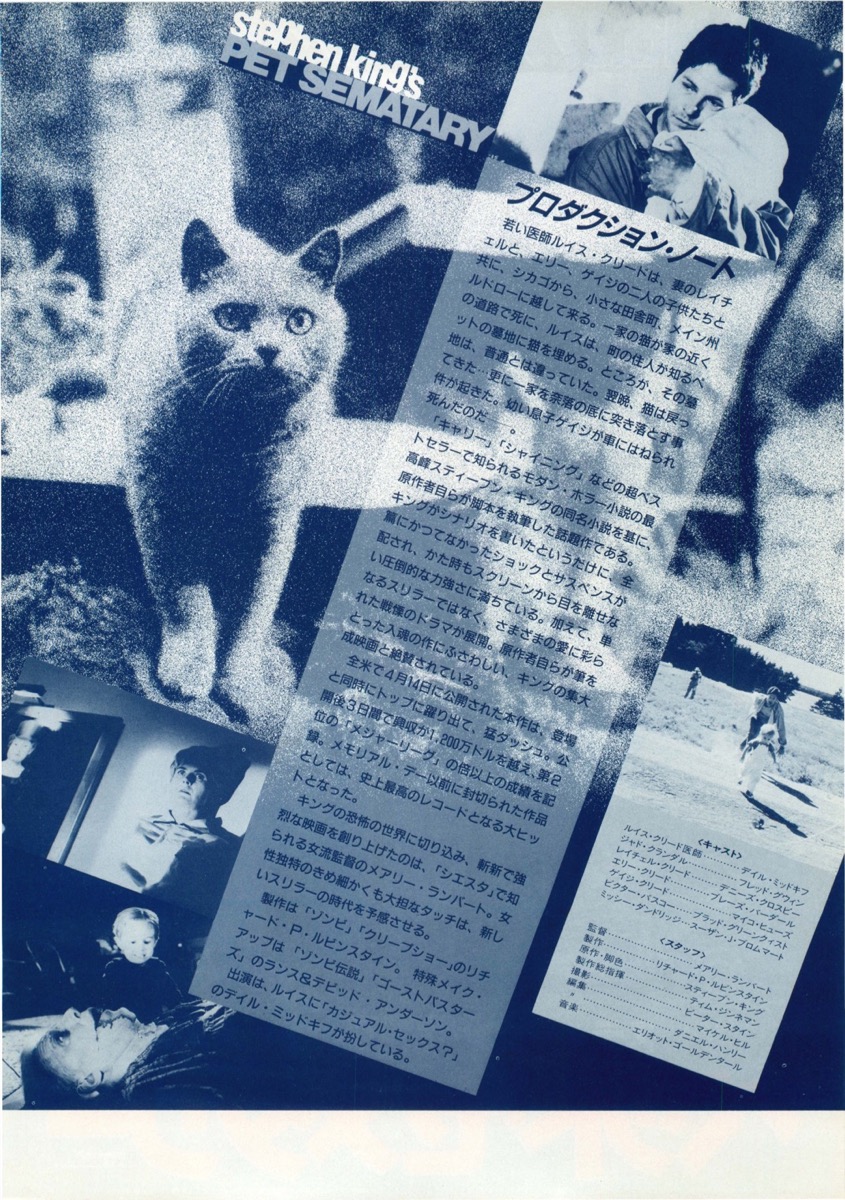 stephen king's
PET SEMATARY
プロダクション・ノート
若い医師ルイス・クリードは、妻のレイチ
ェルと、エリー、ゲイジの二人の子供たちと
共に、シカゴから、小さな田舎町、メイン州
ルドローに越して来る。一家の猫が家の近く
の道路で死に、ルイスは、町の住人が知るペ
ットの墓地に猫を埋める。ところが、その墓
地は、普通とは違っていた。翌晩、猫は戻っ
てきた…更に一家を奈落の底に突き落とす事
件が起きた。幼い息子ゲイジが車にはねられ
死んだのだ　。
「キャリー」「シャイニング」などの超ベス
トセラーで知られるモダン・ホラー小説の最
高峰スティーブン・キングの同名小説を基に、
原作者自らが脚本を執筆した話題作である。
キングがシナリオを書いたというだけに、全
篇にかつてなかったショックとサスペンスが
配され、かた時もスクリーンから目を離せな
い圧倒的な力強さに満ちている。加えて、単
なるスリラーではなく、さまざまの愛に彩ら
れた戦慄のドラマが展開。原作者自らが筆を
とった入魂の作にふさわしい、キングの集大
成映画と絶賛されている。
全米で4月14日に公開された本作は、登場
と同時にトップに躍り出て、猛ダッシュ。公
開後3日間で興収が1,200万ドルを越え、第2
位の「メジャーリーグ」の倍以上の成績を記
録。メモリアル・デー以前に封切られた作品
としては、史上最高のレコードとなる大ヒッ
トとなった。
キングの恐怖の世界に切り込み、斬新で強
烈な映画を創り上げたのは、「シエスタ」で知
られる女流監督のメアリー・ランバート。女
性独特のきめ細かくも大胆なタッチは、新し
いスリラーの時代を予感させる。
製作は「ゾンビ」「クリープショー」のリチ
ャード・P・ルビンスタイン。特殊メイク・
アップは「ゾンビ伝説」「ゴーストバスター
ズ」のランス&デビッド・アンダーソン。
出演は、ルイスに「カジュアル・セックス？」
のデイル・ミッドキフが扮している。
〈キャスト〉
ルイス・クリード医師………デイル・ミッドキフ
ジャド・クランダル…………フレッド・グウィン
レイチェル・クリード……デニーズ・クロスビー
エリー・クリード…………ブレーズ・バーダール
ゲイジ・クリード……………マイコ・ヒューズ
ビクター・パスコー……ブラッド・グリーンクィスト
ミッシー・ダンドリッジ…スーザン・J・ブロムマート
〈スタッフ〉
監督……………………メアリー・ランバート
製作………………リチャード・P・ルビンスタイン
原作・脚色………………スティーブン・キング
製作総指揮…………………ティム・ジンネマン
撮影…………………………ピーター・スタイン
編集…………………………マイケル・ヒル
〃……………………………ダニエル・ハンリー
音楽………………エリオット・ゴールデンタール